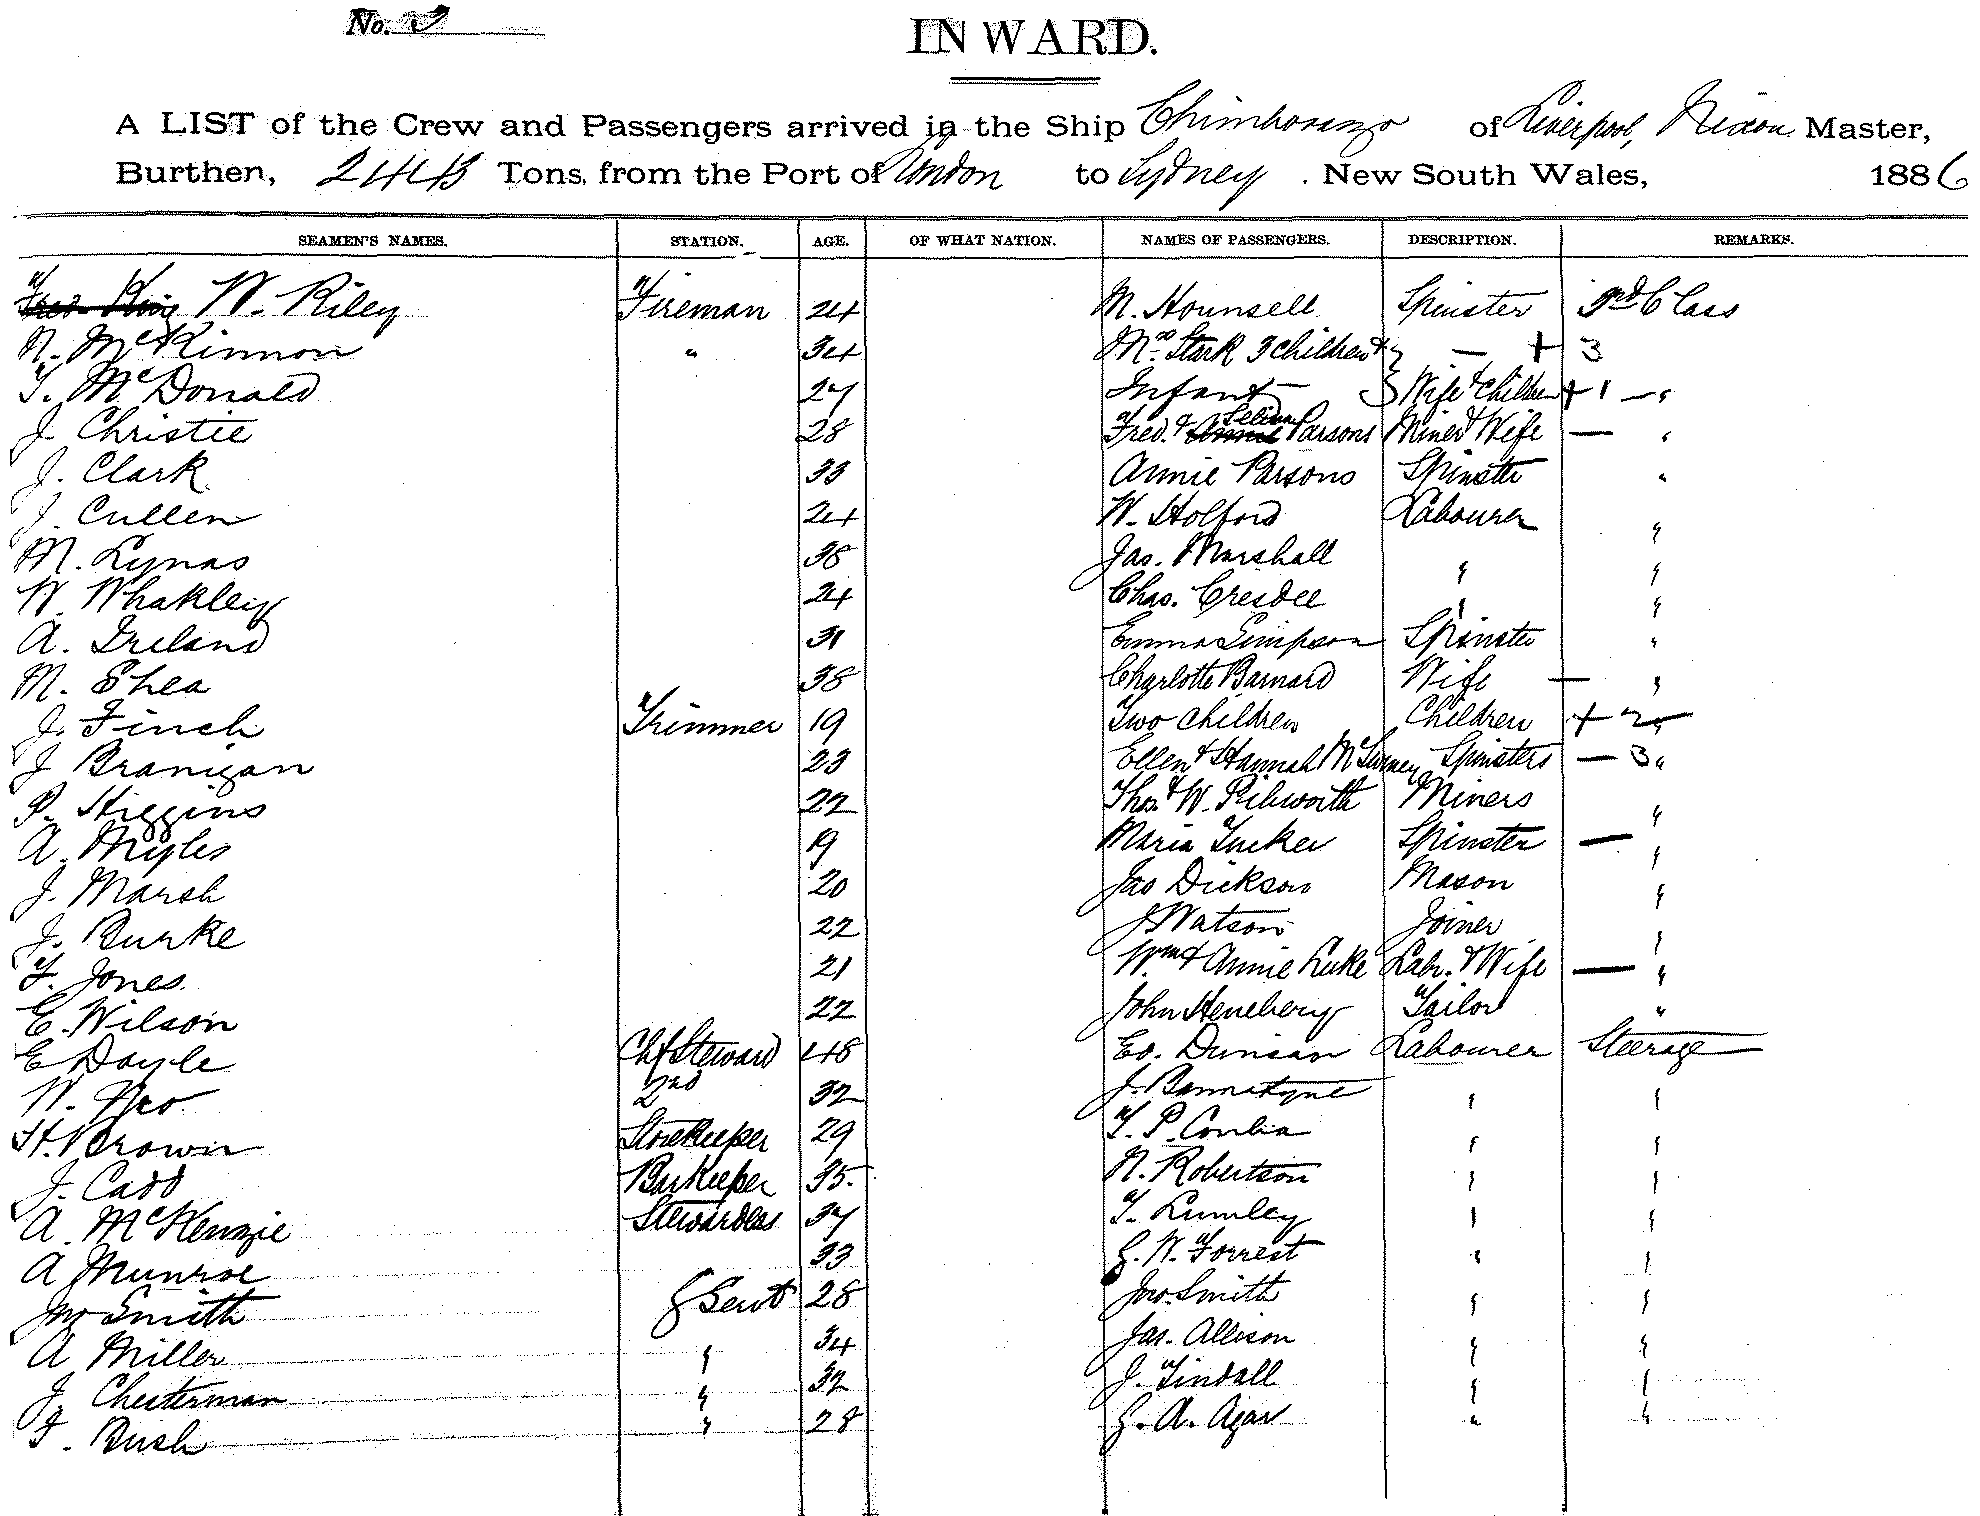 No. 3
INWARD.
A LIST of the Crew and Passengers arrived in the Ship Chimborazo of Liverpool, Nixon Master,
Burthen, 2443 Tons, from the Port of London to Sydney. New South Wales, 1886
SEAMEN'S NAMES. STATION. AGE. OF WHAT NATION. NAMES OF PASSENGERS. DESCRIPTION. REMARKS.
Fred King W. Riley Fireman 24 M. Hounsell Spinster 3rd Class
N. McKinnon " 34 Mrs Stark 3 children & } — + 3
T. McDonald 27 Infant — } Wife & Children + 1 — "
J. Christie 28 Fred. & Annie Selina Parsons Miner & Wife — "
J. Clark 33 Annie Parsons Spinster "
J. Cullen 24 W. Holford Labourer "
M. Lynas 38 Jas. Marshall " "
W. Whakley 24 Chas. Cresdee " "
A. Ireland 31 Emma Simpson Spinster "
M. Shea 38 Charlotte Barnard Wife — "
J. Finch Trimmer 19 Two children Children + 2 "
J. Branigan 23 Ellen & Hannah Spinsters — 3 "
P. Higgins 22 Thos. & W. Pibworth Miners "
A. Myles 19 Maria Tucker Spinster — "
J. Marsh 20 Jas Dickson Mason "
J. Burke 22 J Watson Joiner "
F. Jones 21 Wm & Annie Luke Labr. & Wife — "
E. Wilson 22 John Henebery Tailor "
E Doyle Chf Steward 48 Ed. Duncan Labourer Steerage
W. 2nd 32 J. Bannatyne " "
H. Brown Storekeeper 29 T. P. " "
J. Cadd Barkeeper 35 N. Robertson " "
A. McKenzie Stewardess 37 T. Lumley " "
A Munroe 33 G. W. Forrest " "
Jno Smith G Servt 28 Jno. Smith " "
A Miller " 34 Jas. Allison " "
J. Chesterman " 32 J. Tindall " "
F. Bush " 28 G. A. Agar " "